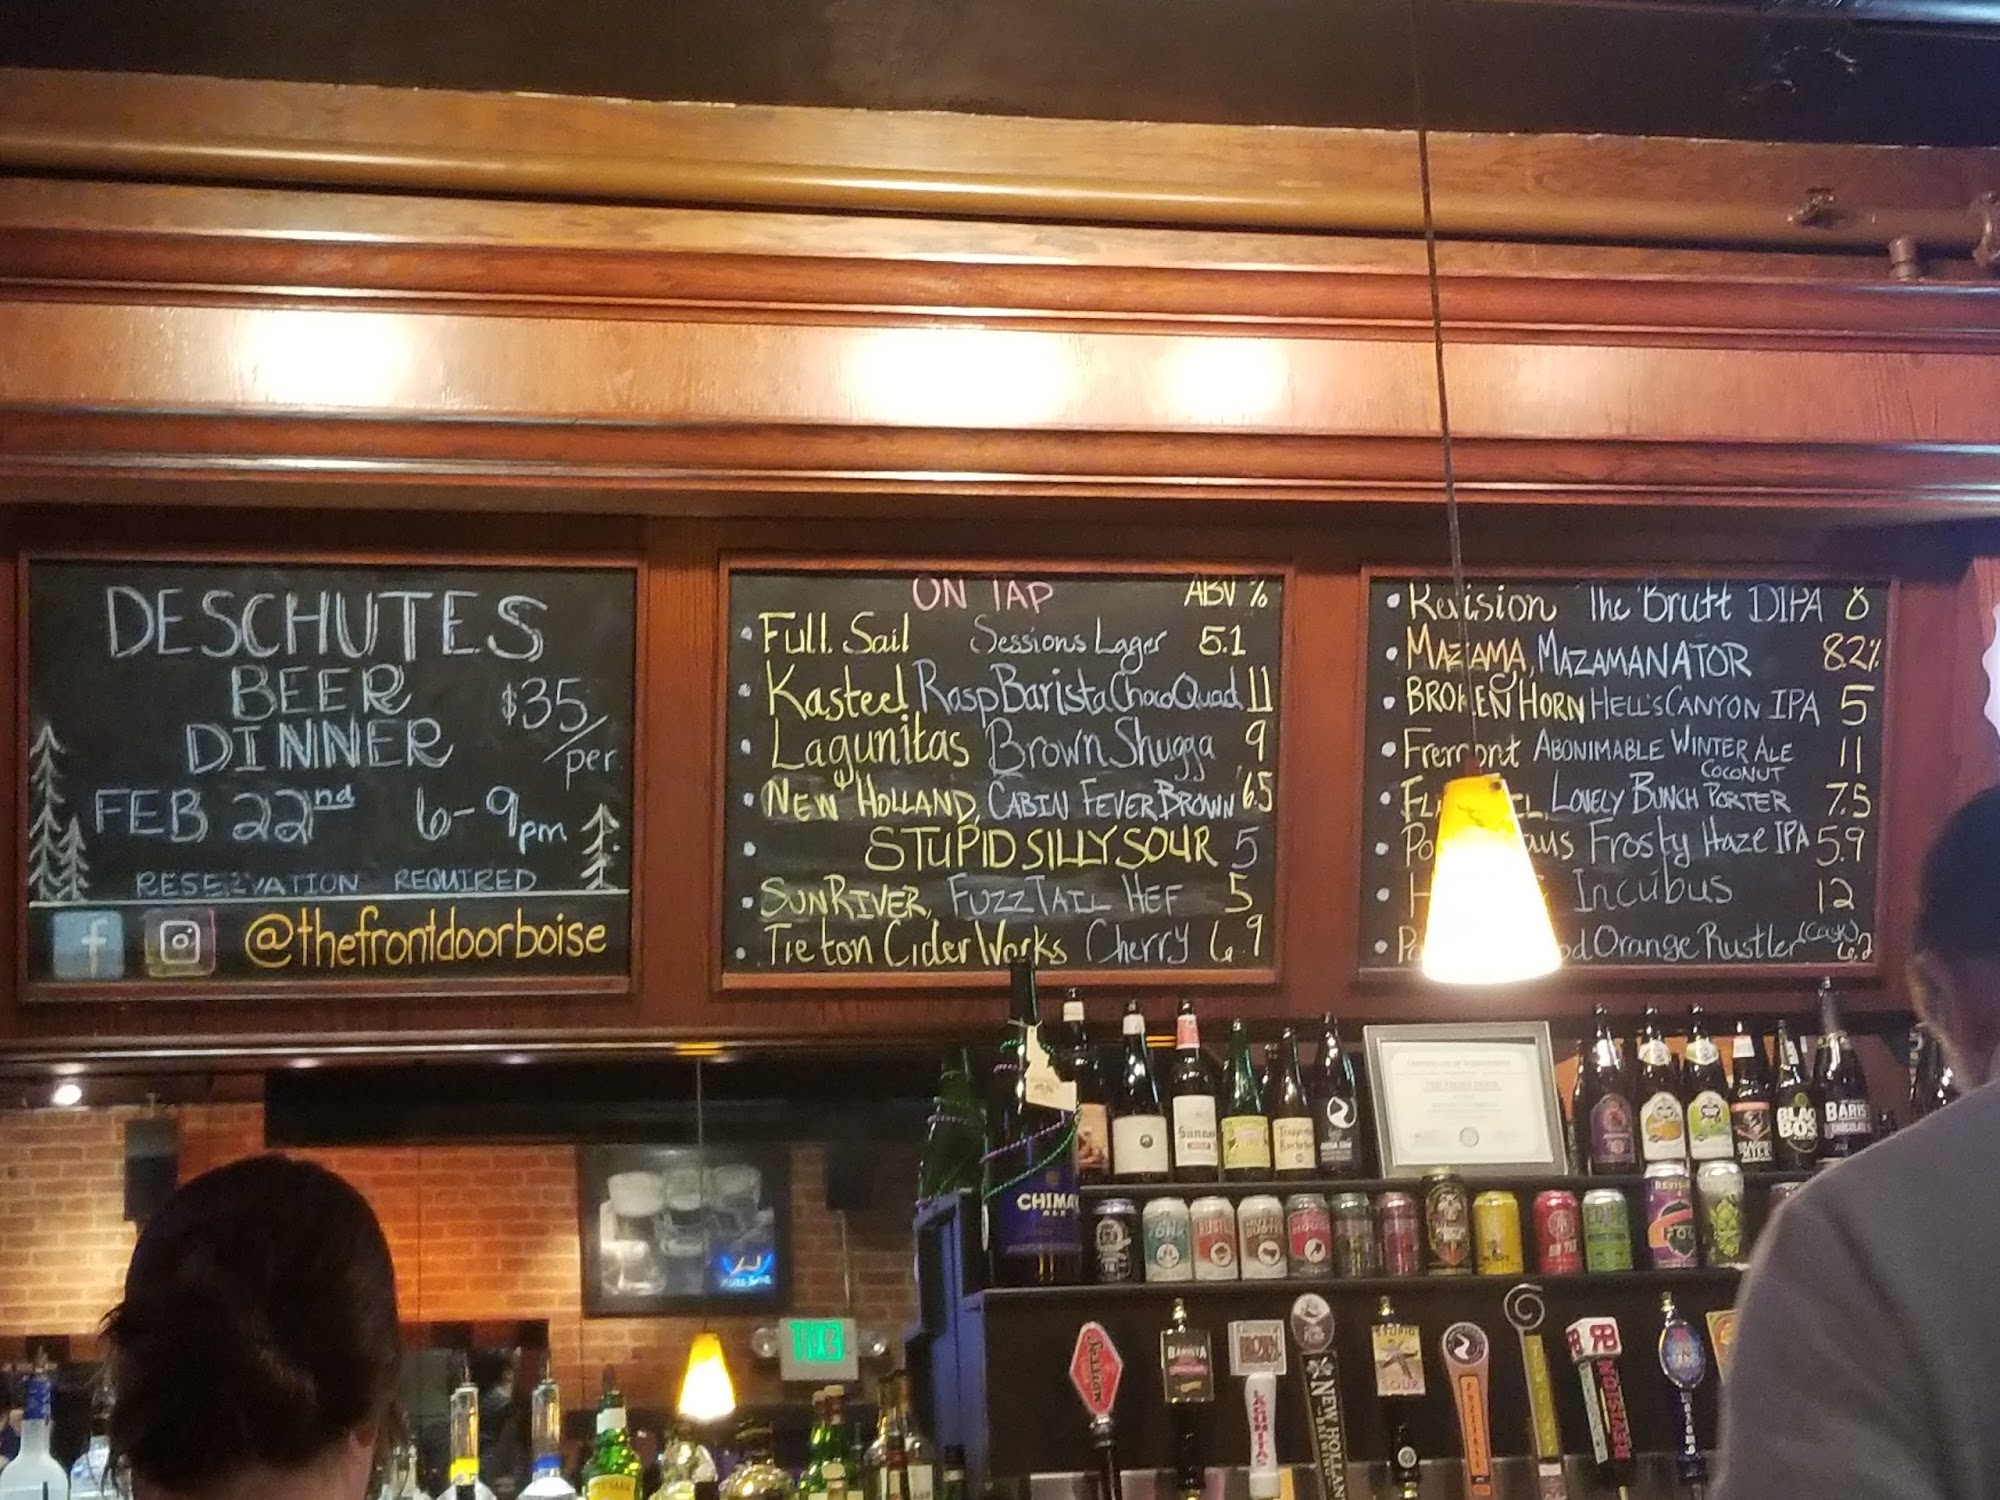 DESCHUTES
BEER
DINNER
$35/per
FEB 22nd 6-9pm
RESERVATION REQUIRED
f @thefrontdoorboise
ON TAP ABV %
• Full Sail Sessions Lager 5.1
• Kasteel RaspBaristaChocoQuad 11
• Lagunitas Brown Shugga 9
• NEW HOLLAND, CABIN FEVER BROWN 6.5
• STUPID SILLY SOUR 5
• SUNRIVER, FUZZTAIL HEF 5
• Tieton Cider Works Cherry 6.9
• Revision The Brutt DIPA 8
• MAZAMA, MAZAMANATOR 8.2%
• BROKEN HORN HELL'S CANYON IPA 5
• Fremont ABONIMABLE WINTER ALE 11
COCONUT
• LOVELY BUNCH PORTER 7.5
• Frosty Haze IPA 5.9
• Incubus 12
• Orange Rustler (Cask) 6.2
CHIMAY
ALE
BARIS
EXIT
Session
BARISTA
SOUR
NEW HOLLAND